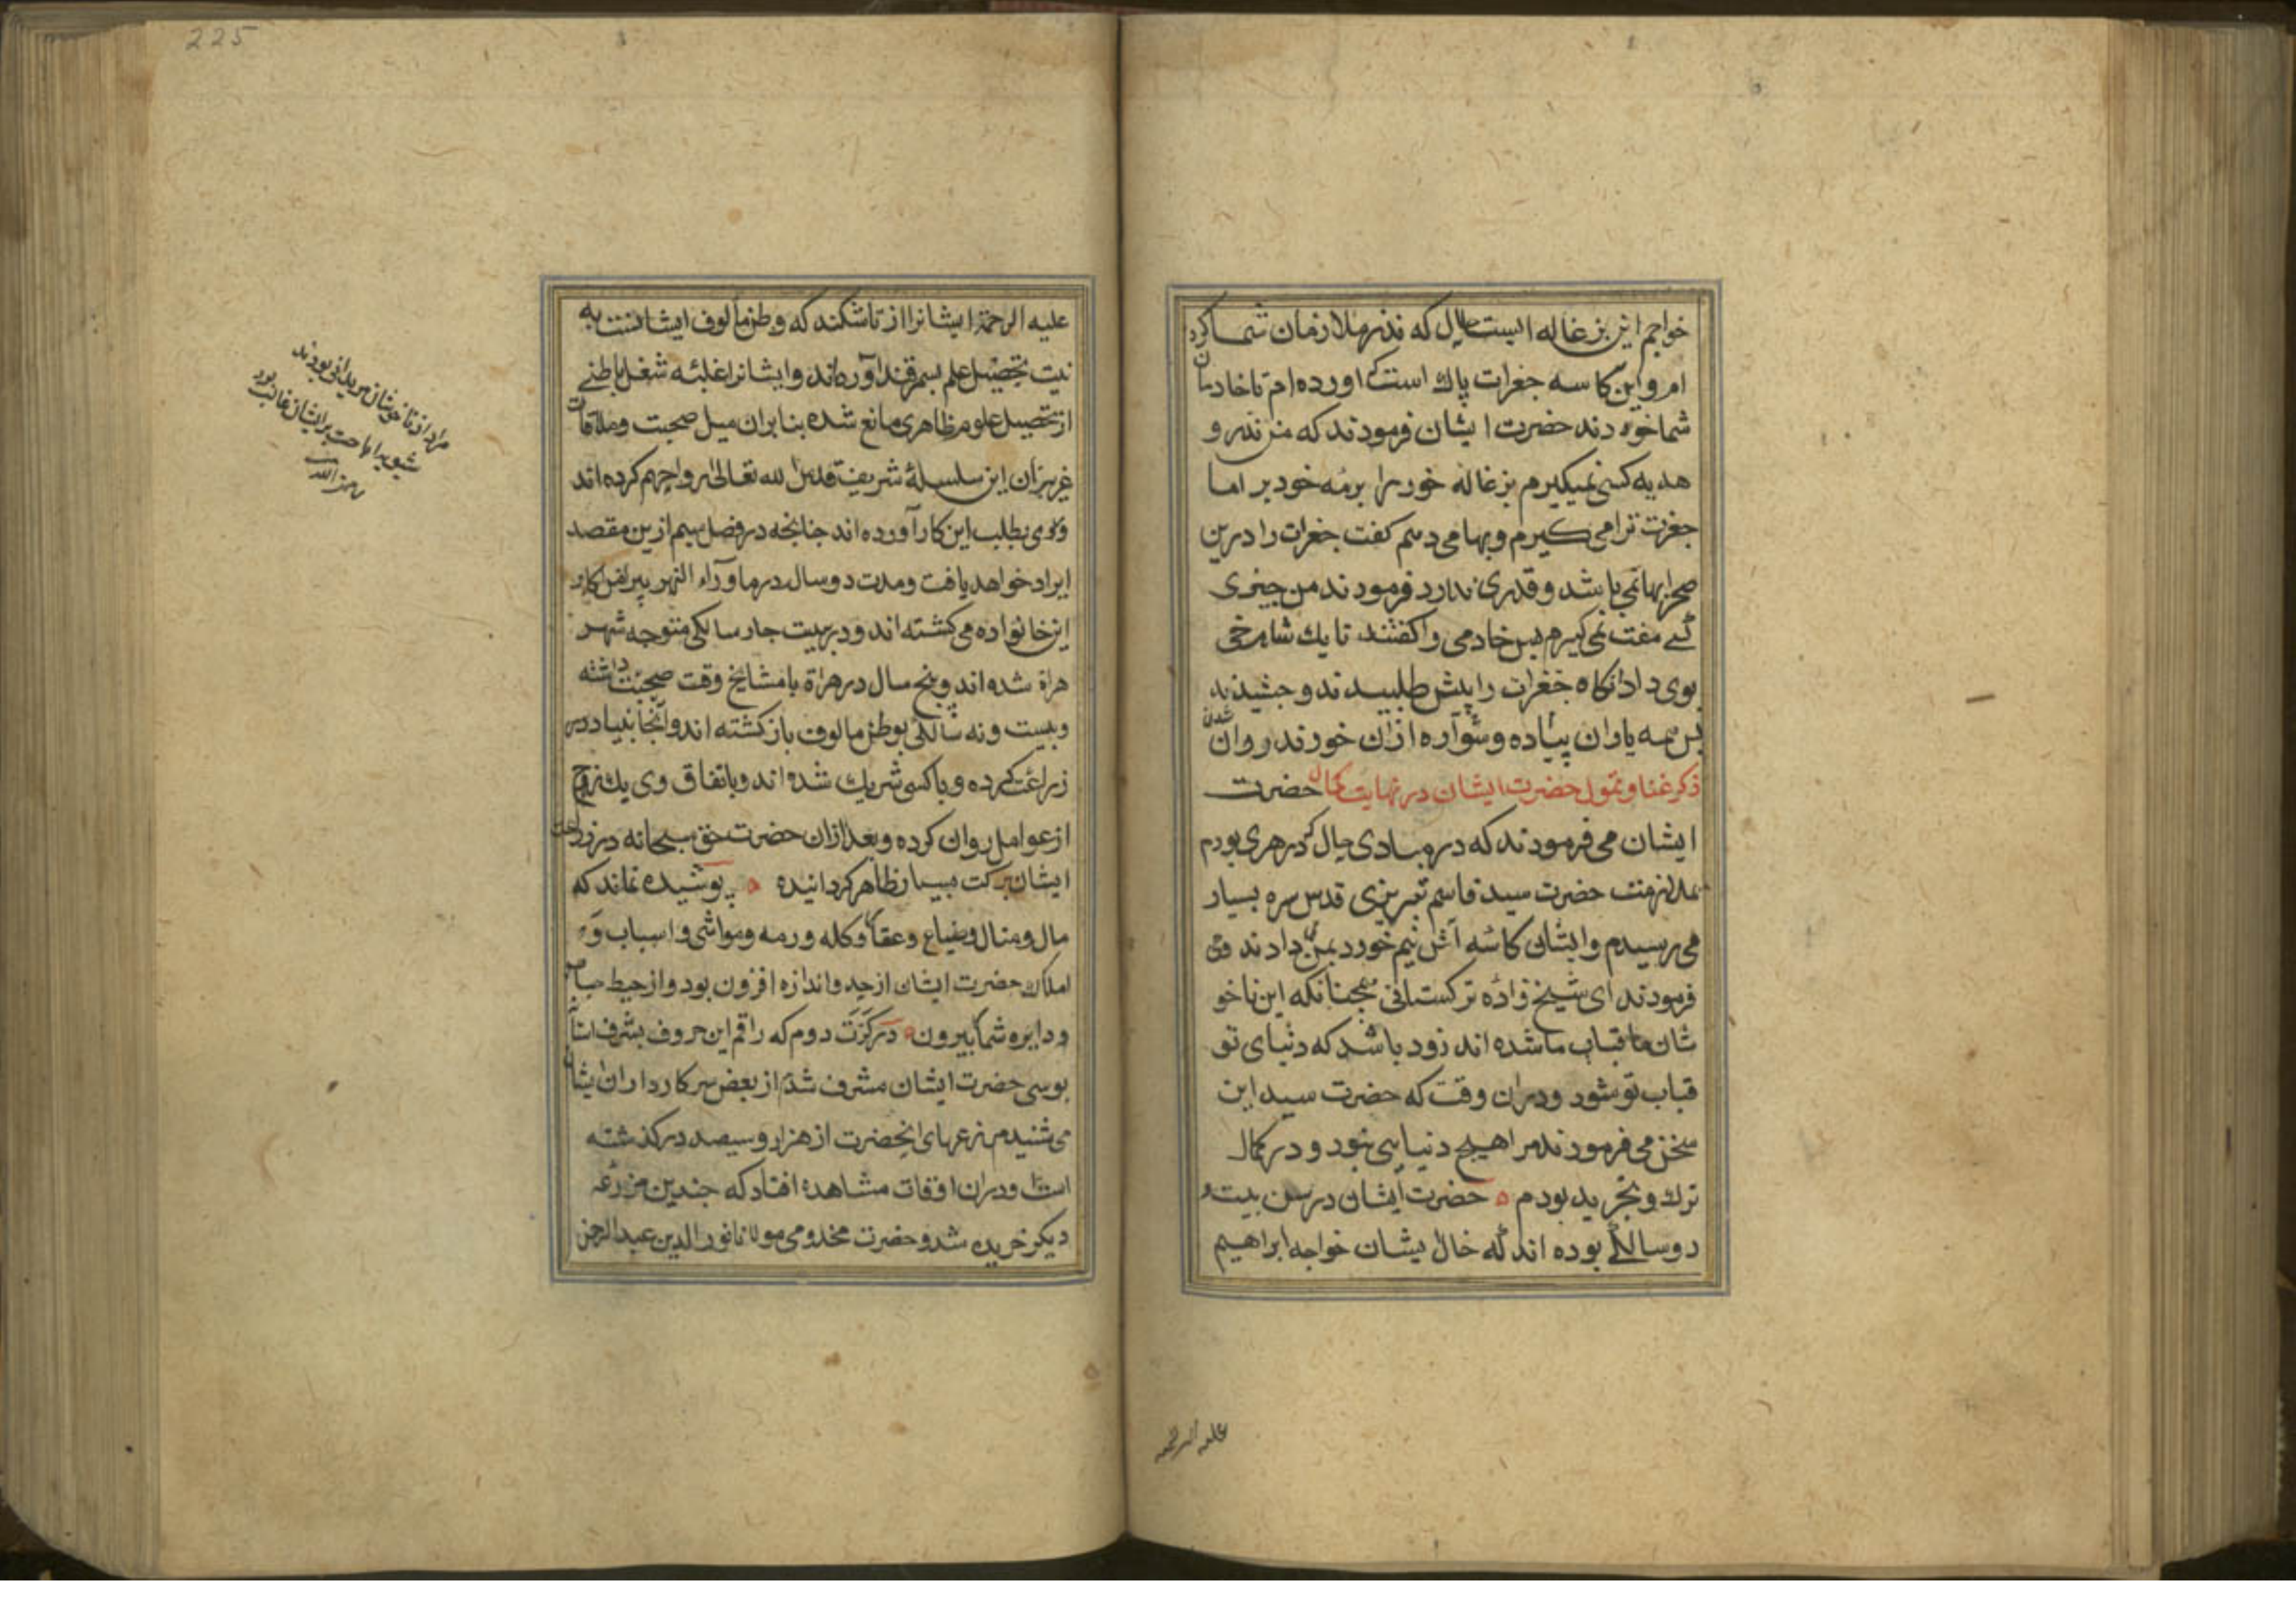 خواجم این بزغاله ایست حلال که نذر ملازمان شما کرده
ام و این کاسه جغرات پاک است که اورده ام تا خادمان
شما خورند حضرت ایشان فرمودند که من نذر و
هدیه کسی نمیکیرم بزغاله خود را برمه خود بر اما
جغرت ترا می کیرم و بها می دهم کفت جغرات را درین
صحرا بها نمی باشد و قدری ندارد فرمودند من چیزی
کسے مفت نمی کیرم پس خادمی را کفتند تا یک شاهرخی
بوی داد انکاه جغرات را پیش طلبیدند و چشیدند
پس همه یاران پیاده و سواره ازان خوردند روان شدن
ذکر غنا و تمول حضرت ایشان در نهایت کمال حضرت
ایشان می فرمودند که در مبادی حال که در هری بودم
بملازمت حضرت سید قاسم تبریزی قدس سره بسیار
می رسیدم و ایشان کاسه آش نیم خورد بمن دادند و
فرمودند ای شیخ زاده ترکستانی همچنانکه این ناخو
شان ما قباب ما شده اند زود باشد که دنیای تو
قباب تو شود و دران وقت که حضرت سید این
سخن می فرمودند مرا هیچ دنیایی نبود و در کمال
ترک و تجرید بودم حضرت ایشان در سن بیست و
دوسالکی بوده اند که خال ایشان خواجه ابراهیم
علیه الرحمه
225
علیه الرحمة ایشانرا از تاشکند که وطن مألوف ایشانست به
نیت تحصیل علم بسمرقند آورده اند و ایشانرا غلبئه شغل باطنے
از تحصیل علوم ظاهری مانع شده بنا بران میل صحبت و ملاقات
عزیزان این سلسلهٔ شریفه قدس الله تعالی ارواحهم کرده اند
و روی بطلب این کار آورده اند چنانچه در فصل سیم ازین مقصد
ایراد خواهد یافت و مدت دو سال در ماورآء النهر پیرامن اکابر
این خانواده می کشته اند و در بیست چار سالکی متوجه شهر
هراة شده اند و پنج سال در هراة با مشایخ وقت صحبت داشته
و بیست و نه سالکی بوطن مالوف باز کشته اند و آنجا بنیاد
زراعت کرده و با کسی شریک شده اند و باتفاق وی یک زوج
از عوامل روان کرده و بعد ازان حضرت حق سبحانه در زراعت
ایشان برکت بسیار ظاهر کردانیده پوشیده نماند که
مال و منال و ضیاع و عقار و کله و رمه و مواشی و اسباب و
املاک حضرت ایشان از حد و اندازه افزون بود و از حیط حساب
و دایره شمار بیرون در کرّت دوم که راقم این حروف بشرف استان
بوسی حضرت ایشان مشرف شدم از بعض سرکارداران ایشان
می شنیدم مزرعهای انحضرت از هزار و سیصد در کذشته
است و دران اوقات مشاهده افتاد که چندین مزرعه
دیکر خریده شد و حضرت مخدومی مولانا نور الدین عبدالرحمن
مراد از ناخوشان مریدانی بودند
اباحت برایشان غالب بود